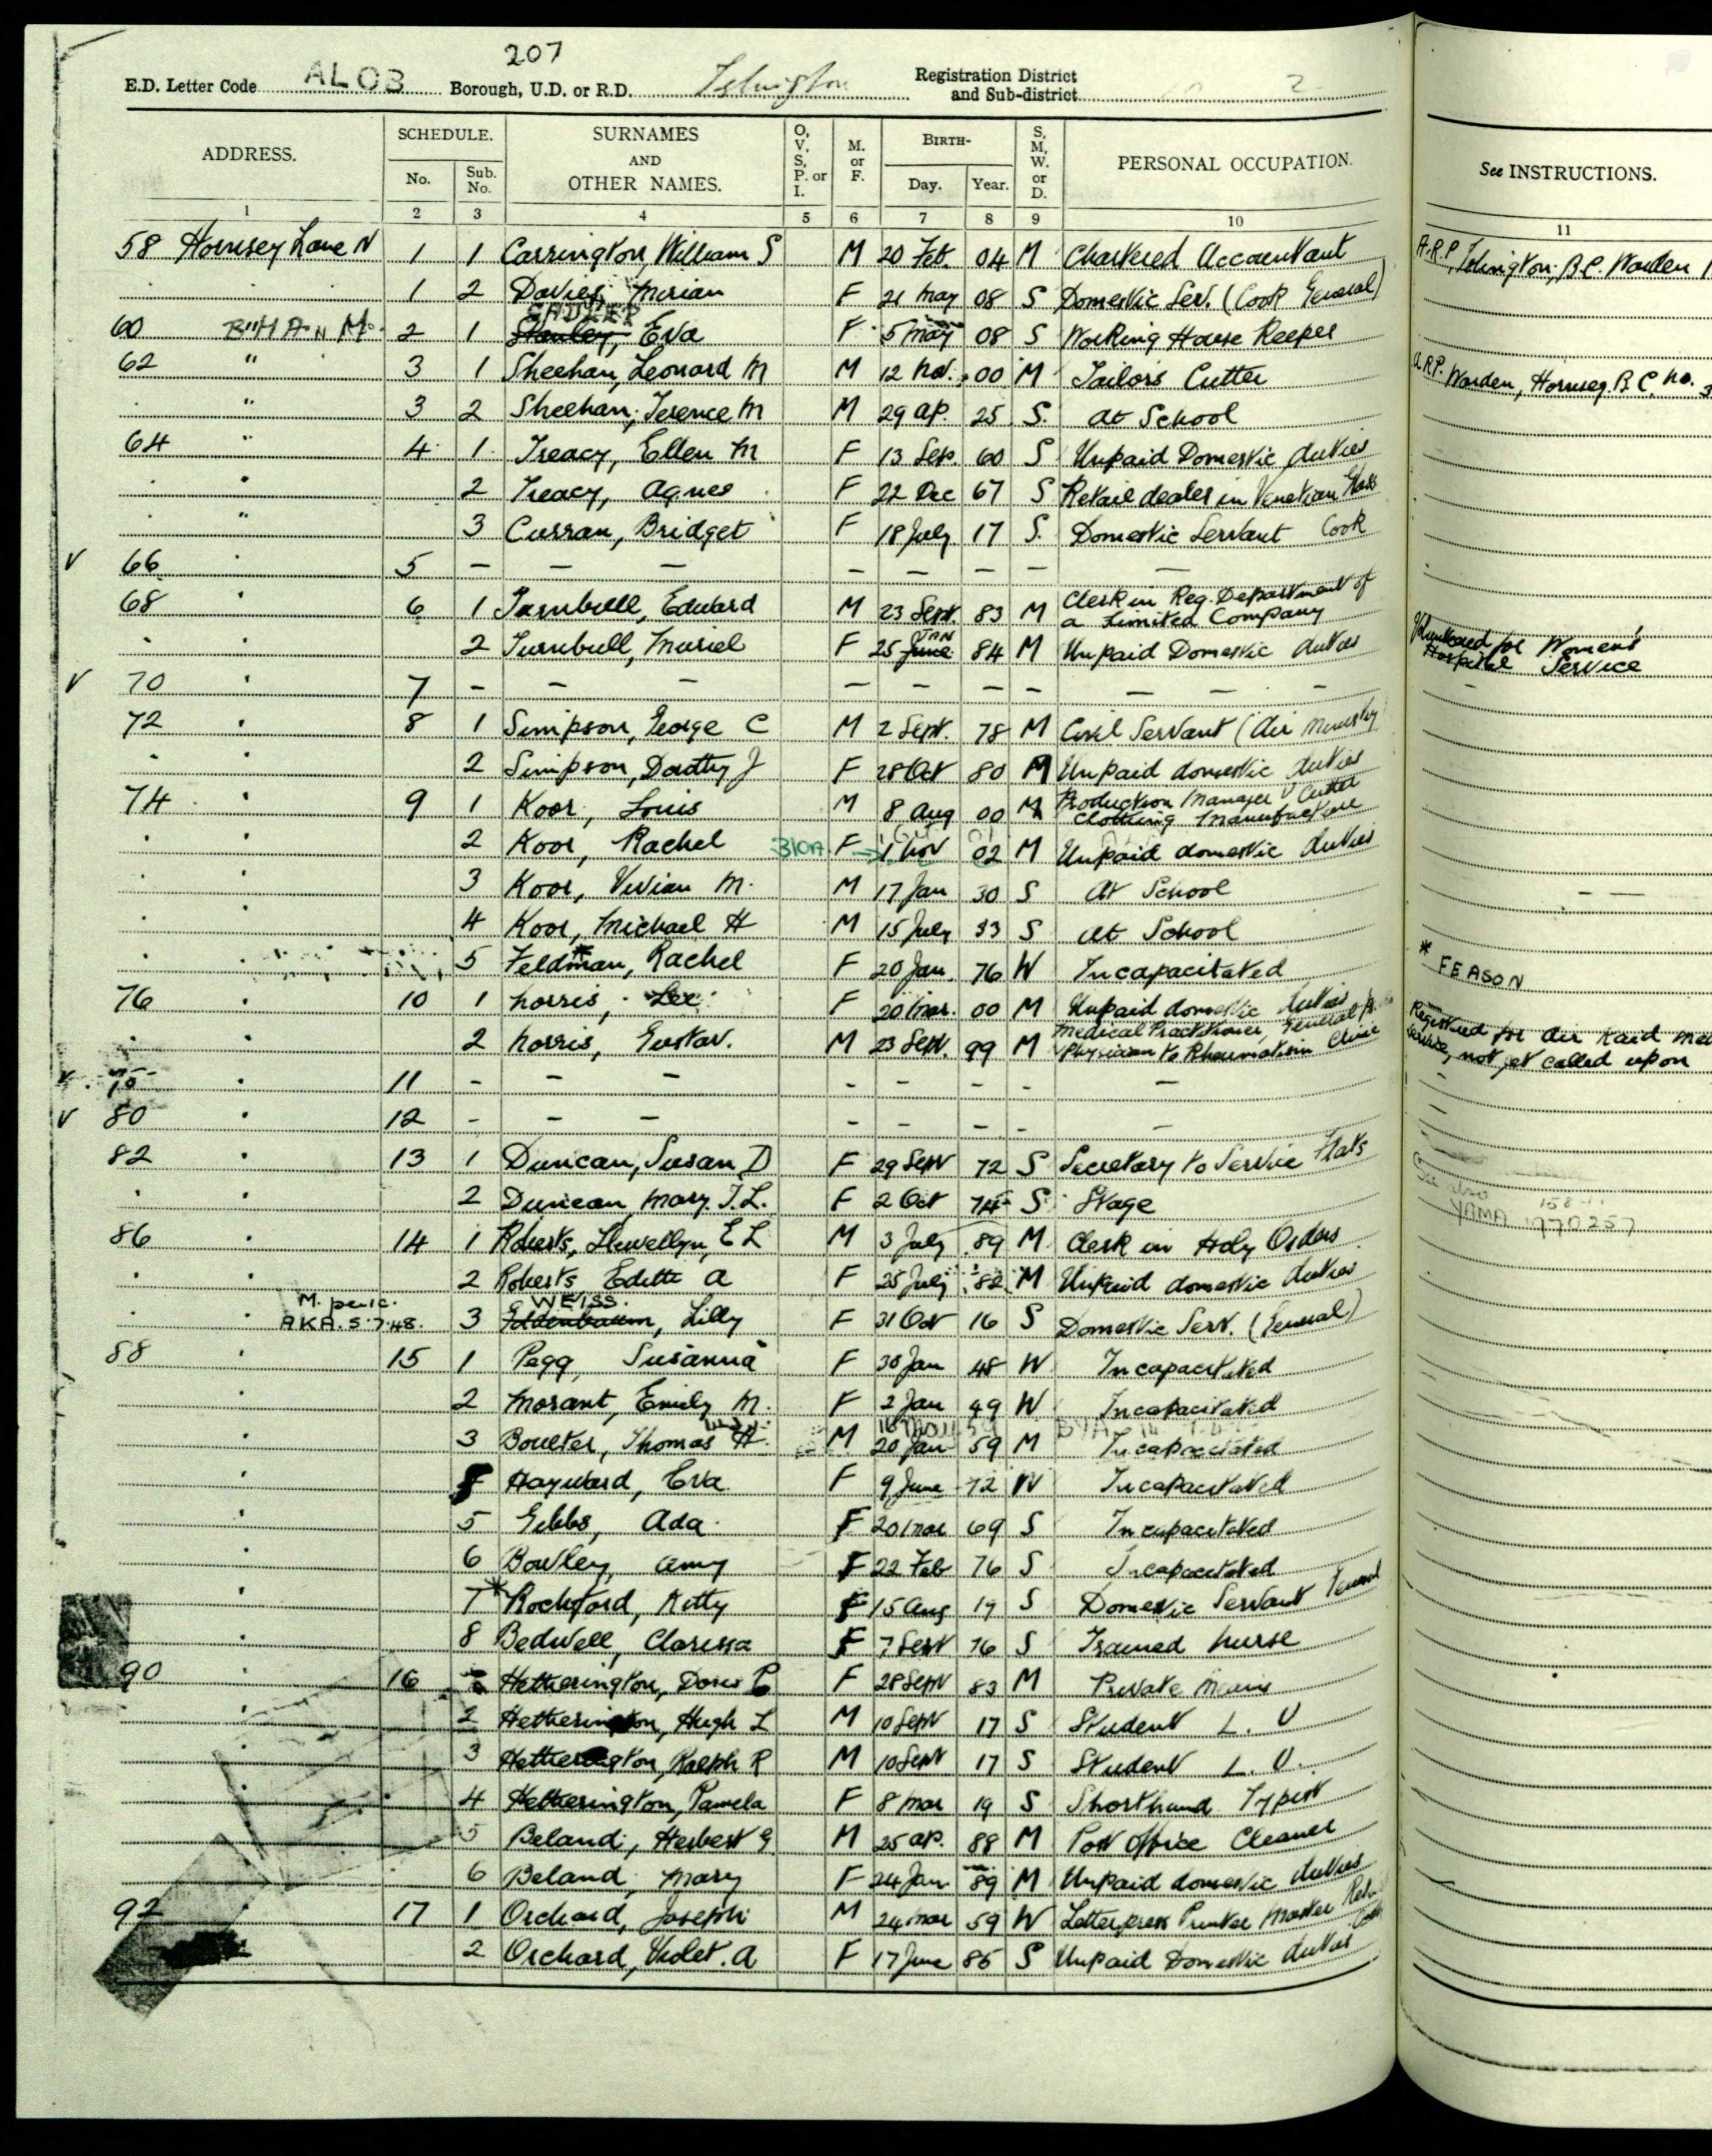 207
E.D. Letter Code ALOB Borough, U.D. or R.D. Islington Registration District and Sub-district 2
ADDRESS. SCHEDULE. No. Sub. No. SURNAMES AND OTHER NAMES. O, V, S, P. or I. M. or F. BIRTH- Day. Year. S, M, W. or D. PERSONAL OCCUPATION. See INSTRUCTIONS.
1 2 3 4 5 6 7 8 9 10 11
58 Hornsey Lane N 1 1 Carrington, William S M 20 Feb. 04 M Chartered Accountant A.R.P. Islington, B.C. Warden
1 2 Davies, Mirian F 21 May 08 S Domestic Serv. (Cook General)
60 2 1 Stanley, Eva F 5 May 08 S Working House Keeper
62 " 3 1 Sheehan, Leonard M M 12 Nov. 00 M Tailor's Cutter A.R.P. Warden, Hornsey. B.C. No. 3
" 3 2 Sheehan, Terence M M 29 Ap. 25 S. At School
64 " 4 1 Treacy, Ellen M F 13 Sep. 60 S Unpaid Domestic duties
" 2 Treacy, Agnes F 22 Dec 67 S Retail dealer in Venetian Glass
" 3 Curran, Bridget F 18 July 17 S. Domestic Servant Cook
V 66 5 – – – – – – – –
68 6 1 Turnbull, Edward M 23 Sept. 83 M Clerk in Reg. Department of a Limited Company
2 Turnbull, Muriel F 25 June JAN 84 M Unpaid Domestic duties Volunteered for Women's Hospital Service
V 70 7 – – – – – – – – – –
72 8 1 Simpson, George C M 2 Sept. 78 M Civil Servant (Air Ministry)
2 Simpson, Dorothy J F 28 Oct 80 M Unpaid domestic duties
74 9 1 Koor, Louis M 8 Aug 00 M Production Manager & Cutter Clothing Manufacture
2 Koor, Rachel F 1 Nov 02 M Unpaid domestic duties
3 Koor, Vivian M. M 17 Jan 30 S At School
4 Koor, Michael H M 15 July 33 S At School
5 Feldman, Rachel F 20 Jan. 76 W Incapacitated * FEASON
76 10 1 Norris, F 20 Mar. 00 M Unpaid domestic duties
2 Norris, Gustav. M 23 Sept. 99 M Medical Practitioner, General Physician to Rheumatism Clinic Registered for Air Raid Service, not yet called upon
V 78 11 – – – – – – – –
V 80 12 – – – – – – – –
82 13 1 Duncan, Susan D F 29 Sept 72 S Secretary to Service Flats
2 Duncan, Mary. J.L. F 2 Oct 74 S Stage
86 14 1 Roberts, Llewellyn, E L M 3 July 89 M Clerk in Holy Orders
2 Roberts Edith A F 25 July 82 M Unpaid domestic duties
AKA. 5.7.48. 3 WEISS. Lilly F 31 Oct 16 S Domestic Serv. (General)
88 15 1 Pegg Susanna F 30 Jan 48 W Incapacitated
2 Morant, Emily M. F 2 Jan 49 W Incapacitated
3 Boulter, Thomas H. M 20 Jan 59 M Incapacitated
Hayward, Eva F 9 June 72 W Incapacitated
5 Gibbs, Ada F 20 Mar 69 S Incapacitated
6 Bowley, Amy F 22 Feb 76 S Incapacitated
7 * Rochford, Kitty F 15 Aug 19 S Domestic Servant General
8 Bedwell, Clarissa F 7 Sept 76 S Trained Nurse
90 16 Hetherington, Doris F 28 Sept 83 M Private Means
2 Hetherington, Hugh L M 10 Sept 17 S Student L. U
3 Hetherington, Ralph R M 10 Sept 17 S Student L. U.
4 Hetherington, Pamela F 8 Mar 19 S Shorthand Typist
5 Beland, Herbert G M 25 Ap. 88 M Post Office Cleaner
6 Beland, Mary F 24 Jan 89 M Unpaid domestic duties
92 17 1 Orchard, Joseph M 24 Mar 59 W Letterpress Printer Master
2 Orchard, Violet. A F 17 June 86 S Unpaid Domestic duties